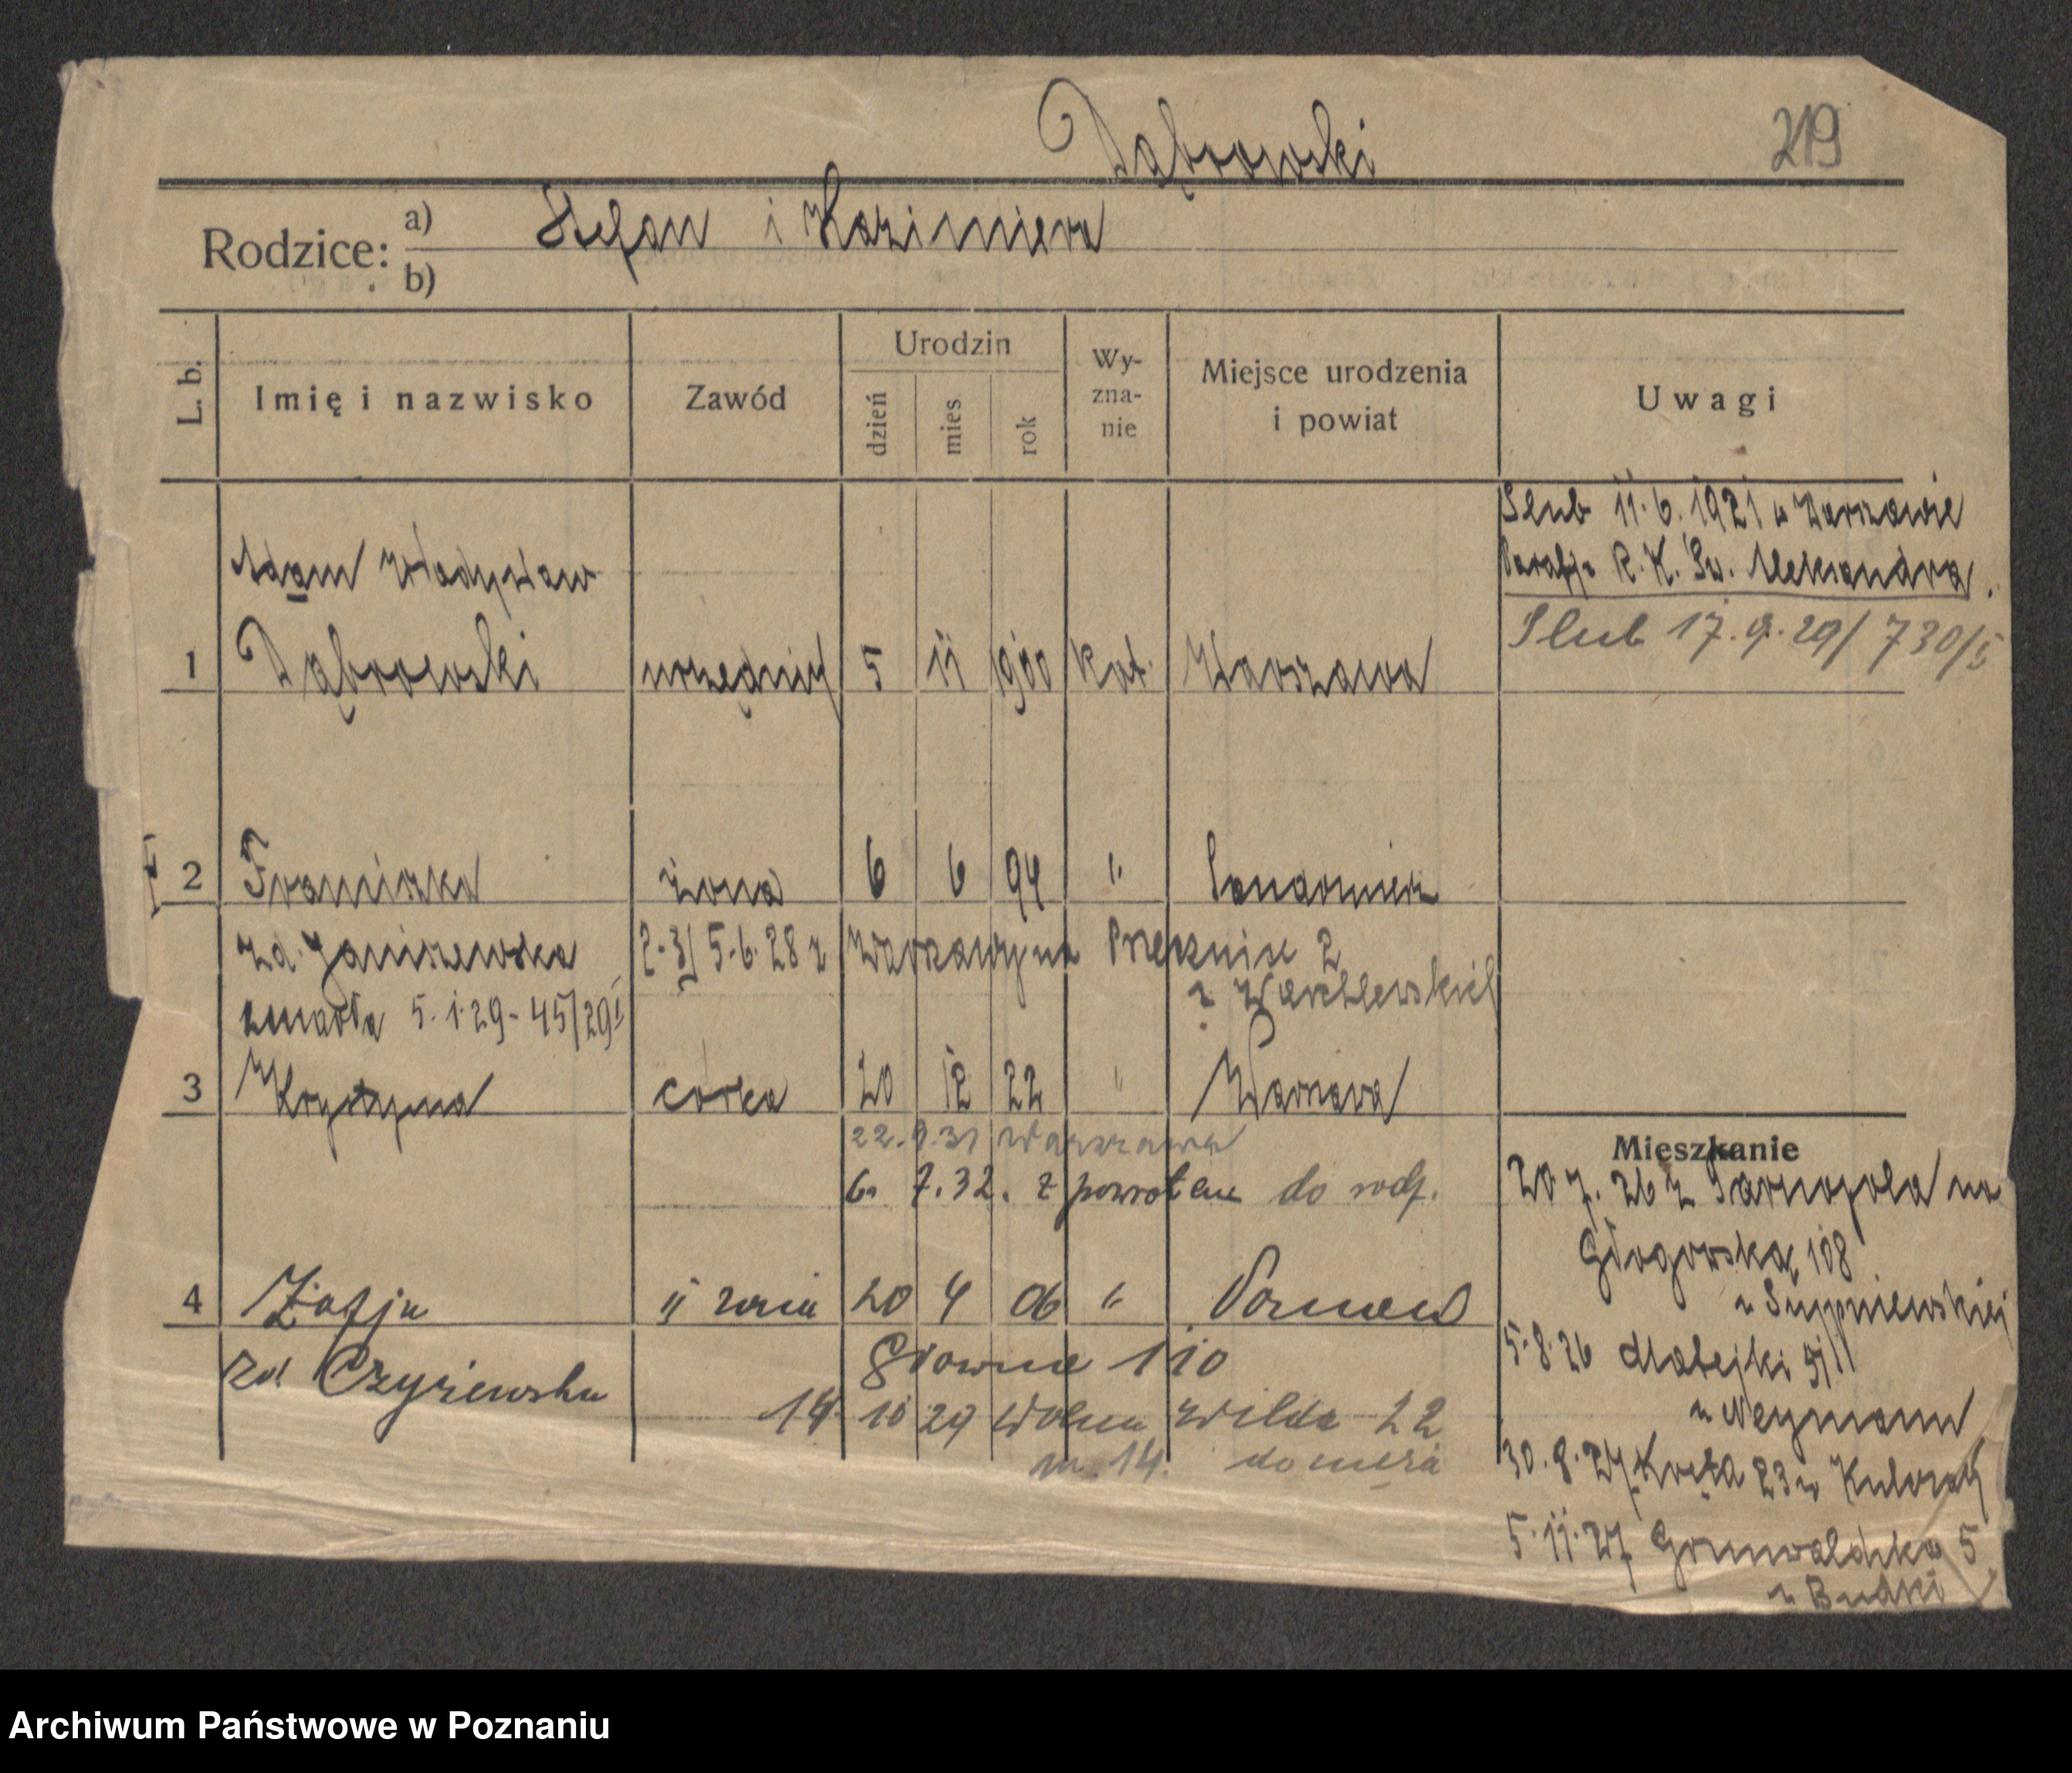 Dąbrowski
219
Rodzice: a) Stefan i Kazimiera
b)
L. b.
Imię i nazwisko
Zawód
Urodzin
dzień
mies.
rok
Wy-
zna-
nie
Miejsce urodzenia
i powiat
Uwagi
Slub 11.6.1921 w Warszawie
Parafja R. K. Sw. Aleksandra.
Slub 17.9.29/730/5
Adam Władysław
1 Dąbrowski urzędnik 5 11 1900 kat. Warszawa
2 Franciszka żona 6 6 94 " Sandomierz
zd. Janiszewska 2-3) 5.6.28 z Warszawy na 2
zmarła 5.1.29 - 45/29
3 Krystyna córka 20 12 22 " Warszawa
22.9.31 Warszawa
6. 7.32. z powrotem do rodz.
4 Zofja II żona 20 4 06 " Poznań
zd. Czyżewska Główna 110
14 10 29 Wolna Wilda 22
m. 14. do męża
Mieszkanie
20.7.26 z Tarnopola na
Głogowską 108
u Sypniewskiej
5.8.26 Matejki 51
u Neymann
30.8.27 Kręta 23 u
5.11.27 Grunwaldzka 5
u Budki
Archiwum Państwowe w Poznaniu